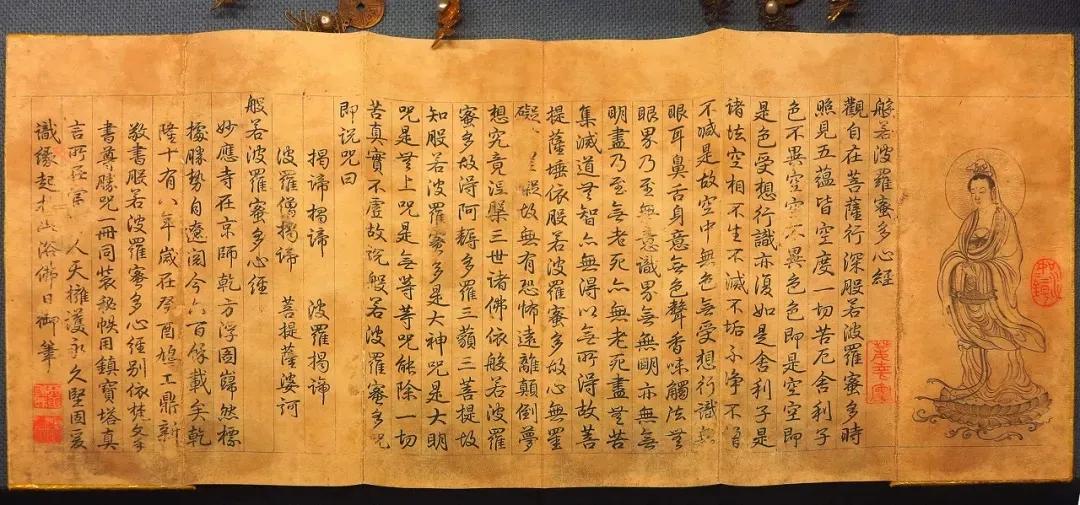 般若波羅蜜多心經
觀自在菩薩行深般若波羅蜜多時
照見五蘊皆空度一切苦厄舍利子
色不異空空不異色色即是空空即
是色受想行識亦復如是舍利子是
諸法空相不生不滅不垢不淨不增
不減是故空中無色無受想行識無
眼耳鼻舌身意無色聲香味觸法無
眼界乃至無意識界無無明亦無無
明盡乃至無老死亦無老死盡無苦
集滅道無智亦無得以無所得故菩
提薩埵依般若波羅蜜多故心無罣
礙故無有恐怖遠離顛倒夢
想究竟涅槃三世諸佛依般若波羅
蜜多故得阿耨多羅三藐三菩提故
知般若波羅蜜多是大神咒是大明
咒是無上咒是無等等咒能除一切
苦真實不虛故說般若波羅蜜多咒
即說咒曰
揭諦揭諦 波羅揭諦
波羅僧揭諦 菩提薩婆訶
般若波羅蜜多心經
妙應寺在京師乾方浮圖巋然標
據勝勢自遼閱今六百餘載矣乾
隆十有八年歲在癸酉鳩工鼎新
敬書般若波羅蜜多心經別依梵本
書尊勝咒一冊同裝秘帙用鎮寶塔真
言所在人天擁護永久堅固爰
識緣起於此浴佛日御筆